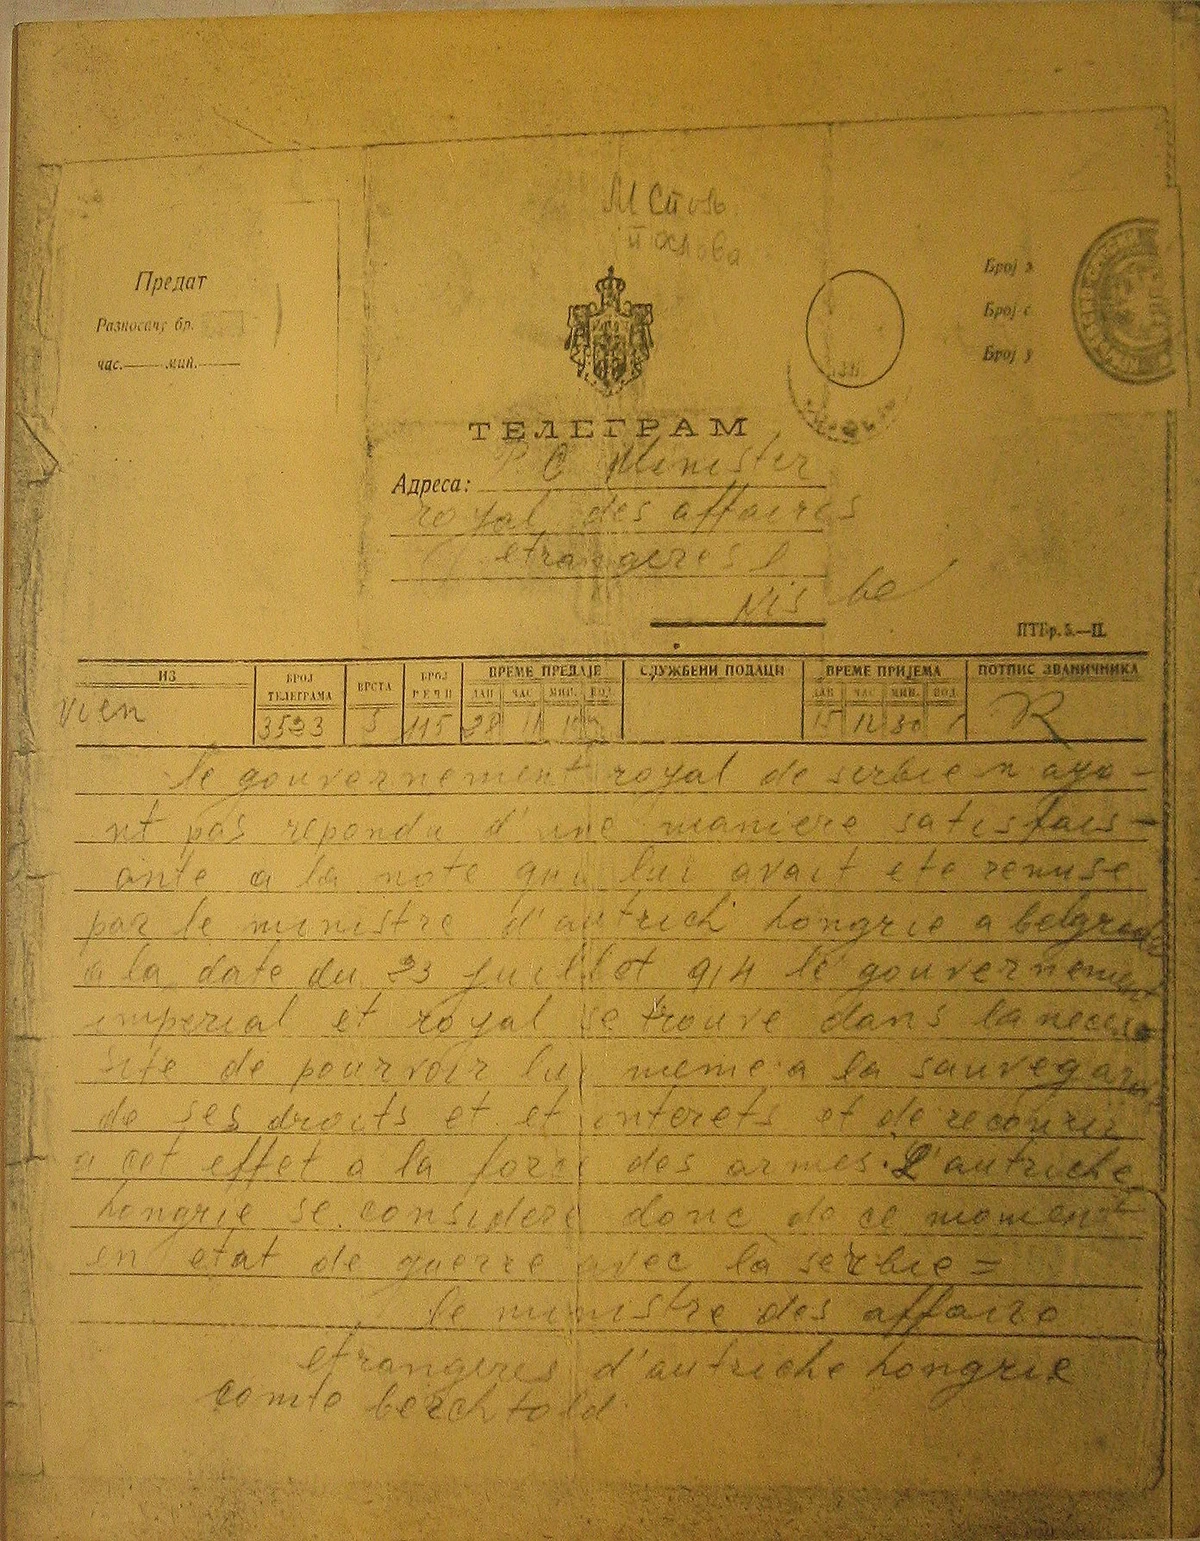 М Спољ.
послова
Предат
Разносачу бр.
час. мин.
Број
Број
Број
ТЕЛЕГРАМ
Адреса: Minister
royal des affaires
etrangeres
Nis
ПТБр. 5.—П.
ИЗ БРОЈ ТЕЛЕГРАМА ВРСТА БРОЈ РЕЧИ ВРЕМЕ ПРЕДАЈЕ СЛУЖБЕНИ ПОДАЦИ ВРЕМЕ ПРИЈЕМА ПОТПИС ЗВАНИЧНИКА
ДАН ЧАС МИН. ПОД ДАН ЧАС МИН. ПОД
Vien 3523 5 115 28 11 15 12 30 R
le gouvernement royal de serbie n aya-
nt pas repondu d'une maniere satisfais-
ante a la note qui lui avait ete remise
par le ministre d'autrich hongrie a belgrade
a la date du 23 juillet 914 le gouvernement
imperial et royal se trouve dans la neces-
site de pourvoir lui meme a la sauvegarde
de ses droits et et interets et de recourir
a cet effet a la force des armes. L'autriche
hongrie se considere donc de ce moment
en etat de guerre avec la serbie =
le ministre des affaire
etrangeres d'autriche hongrie
comte berchtold.